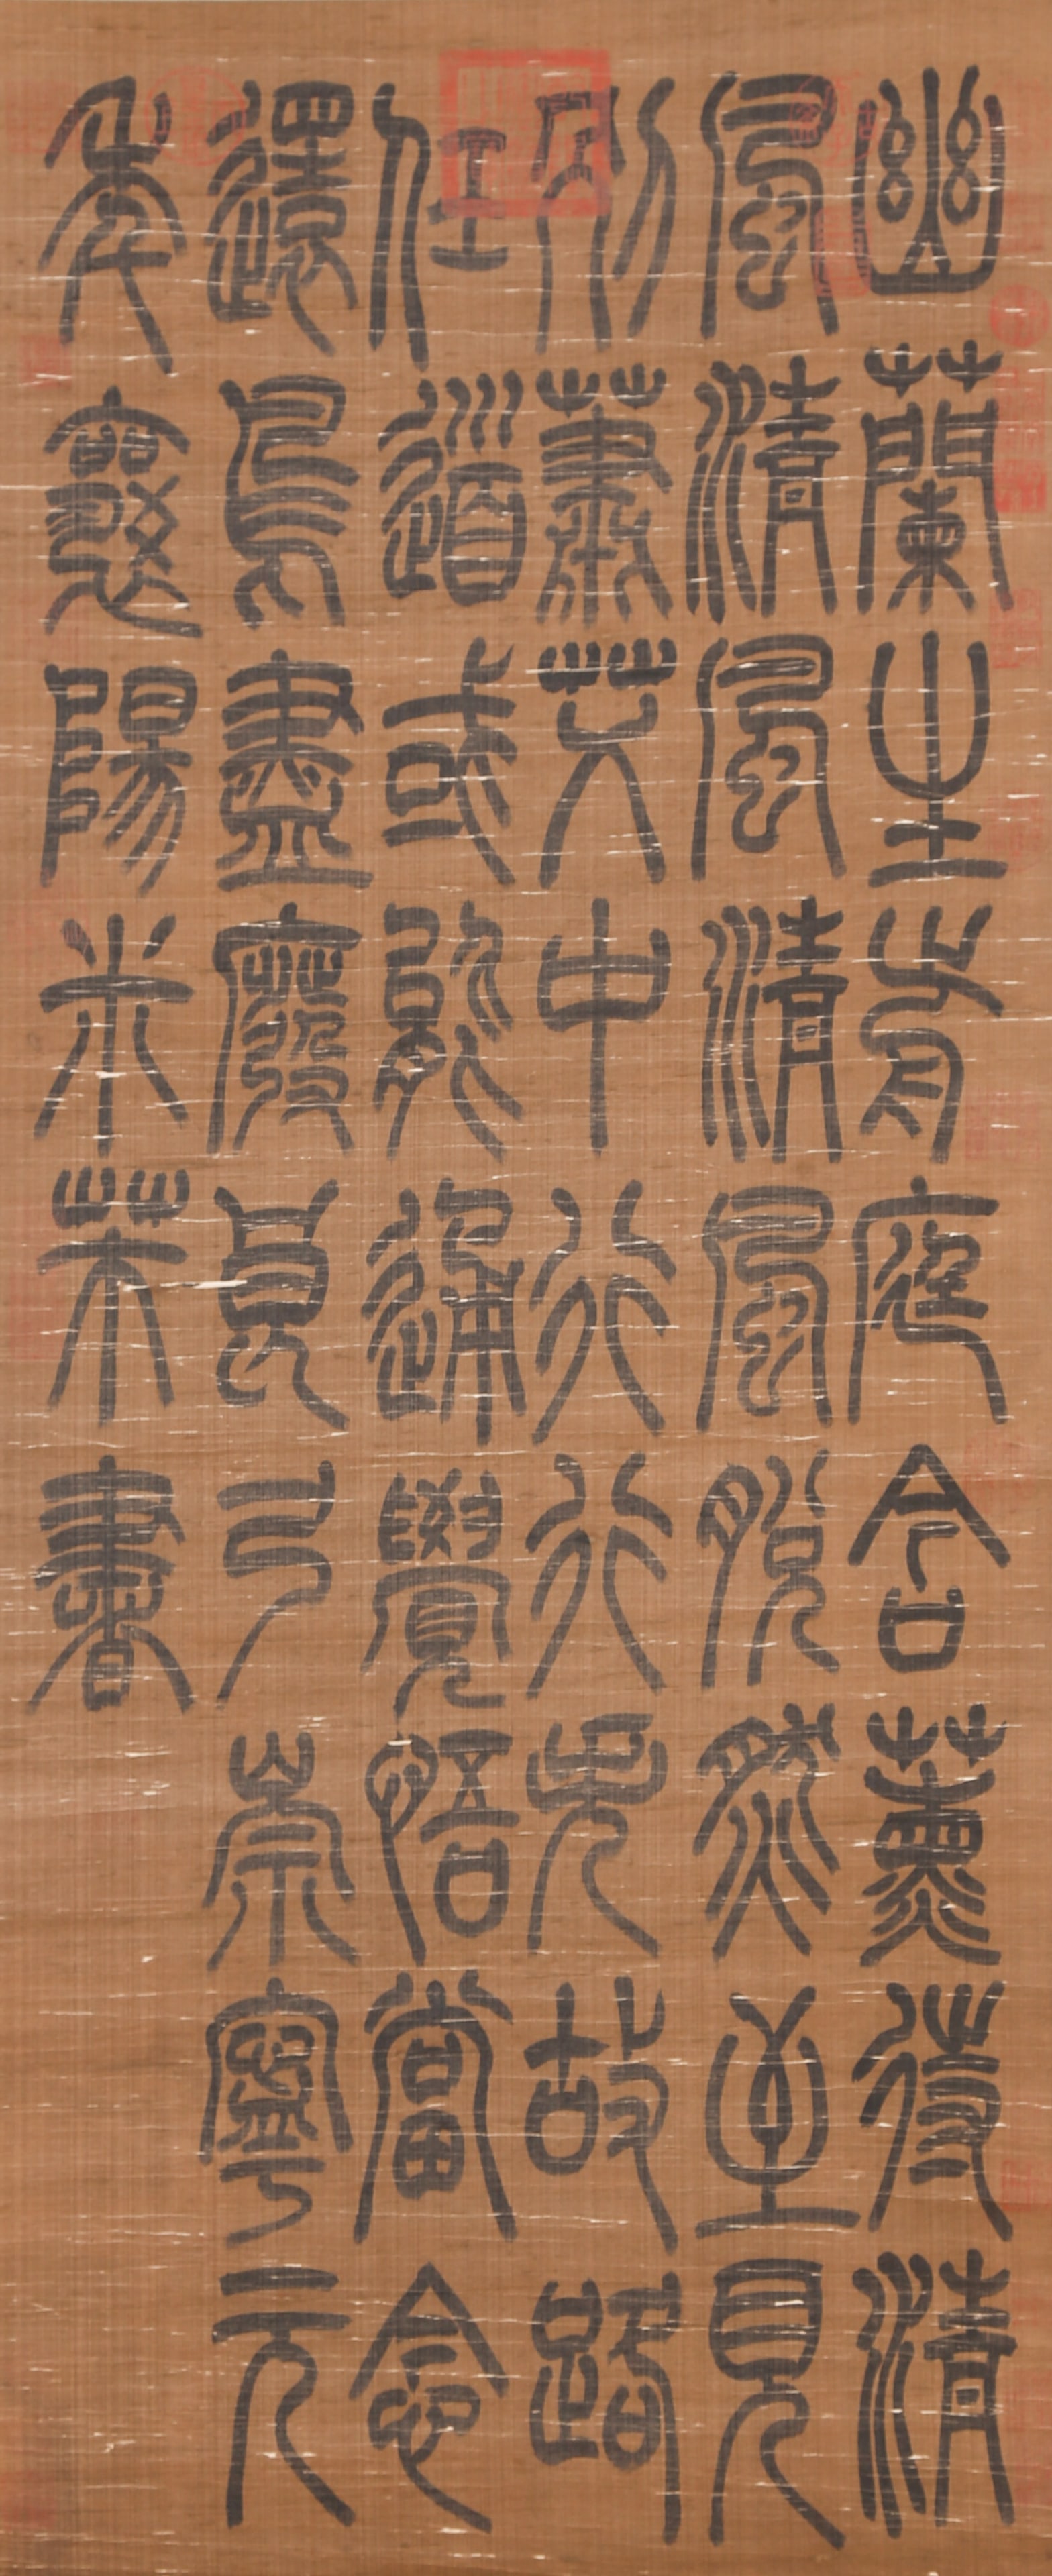 幽蘭生前庭含薰待清
風清風清風脫然至見
別蕭艾中行行失故路
任道或能通覺悟當念
還鳥盡廢良弓崇寧元
年襄陽米芾書